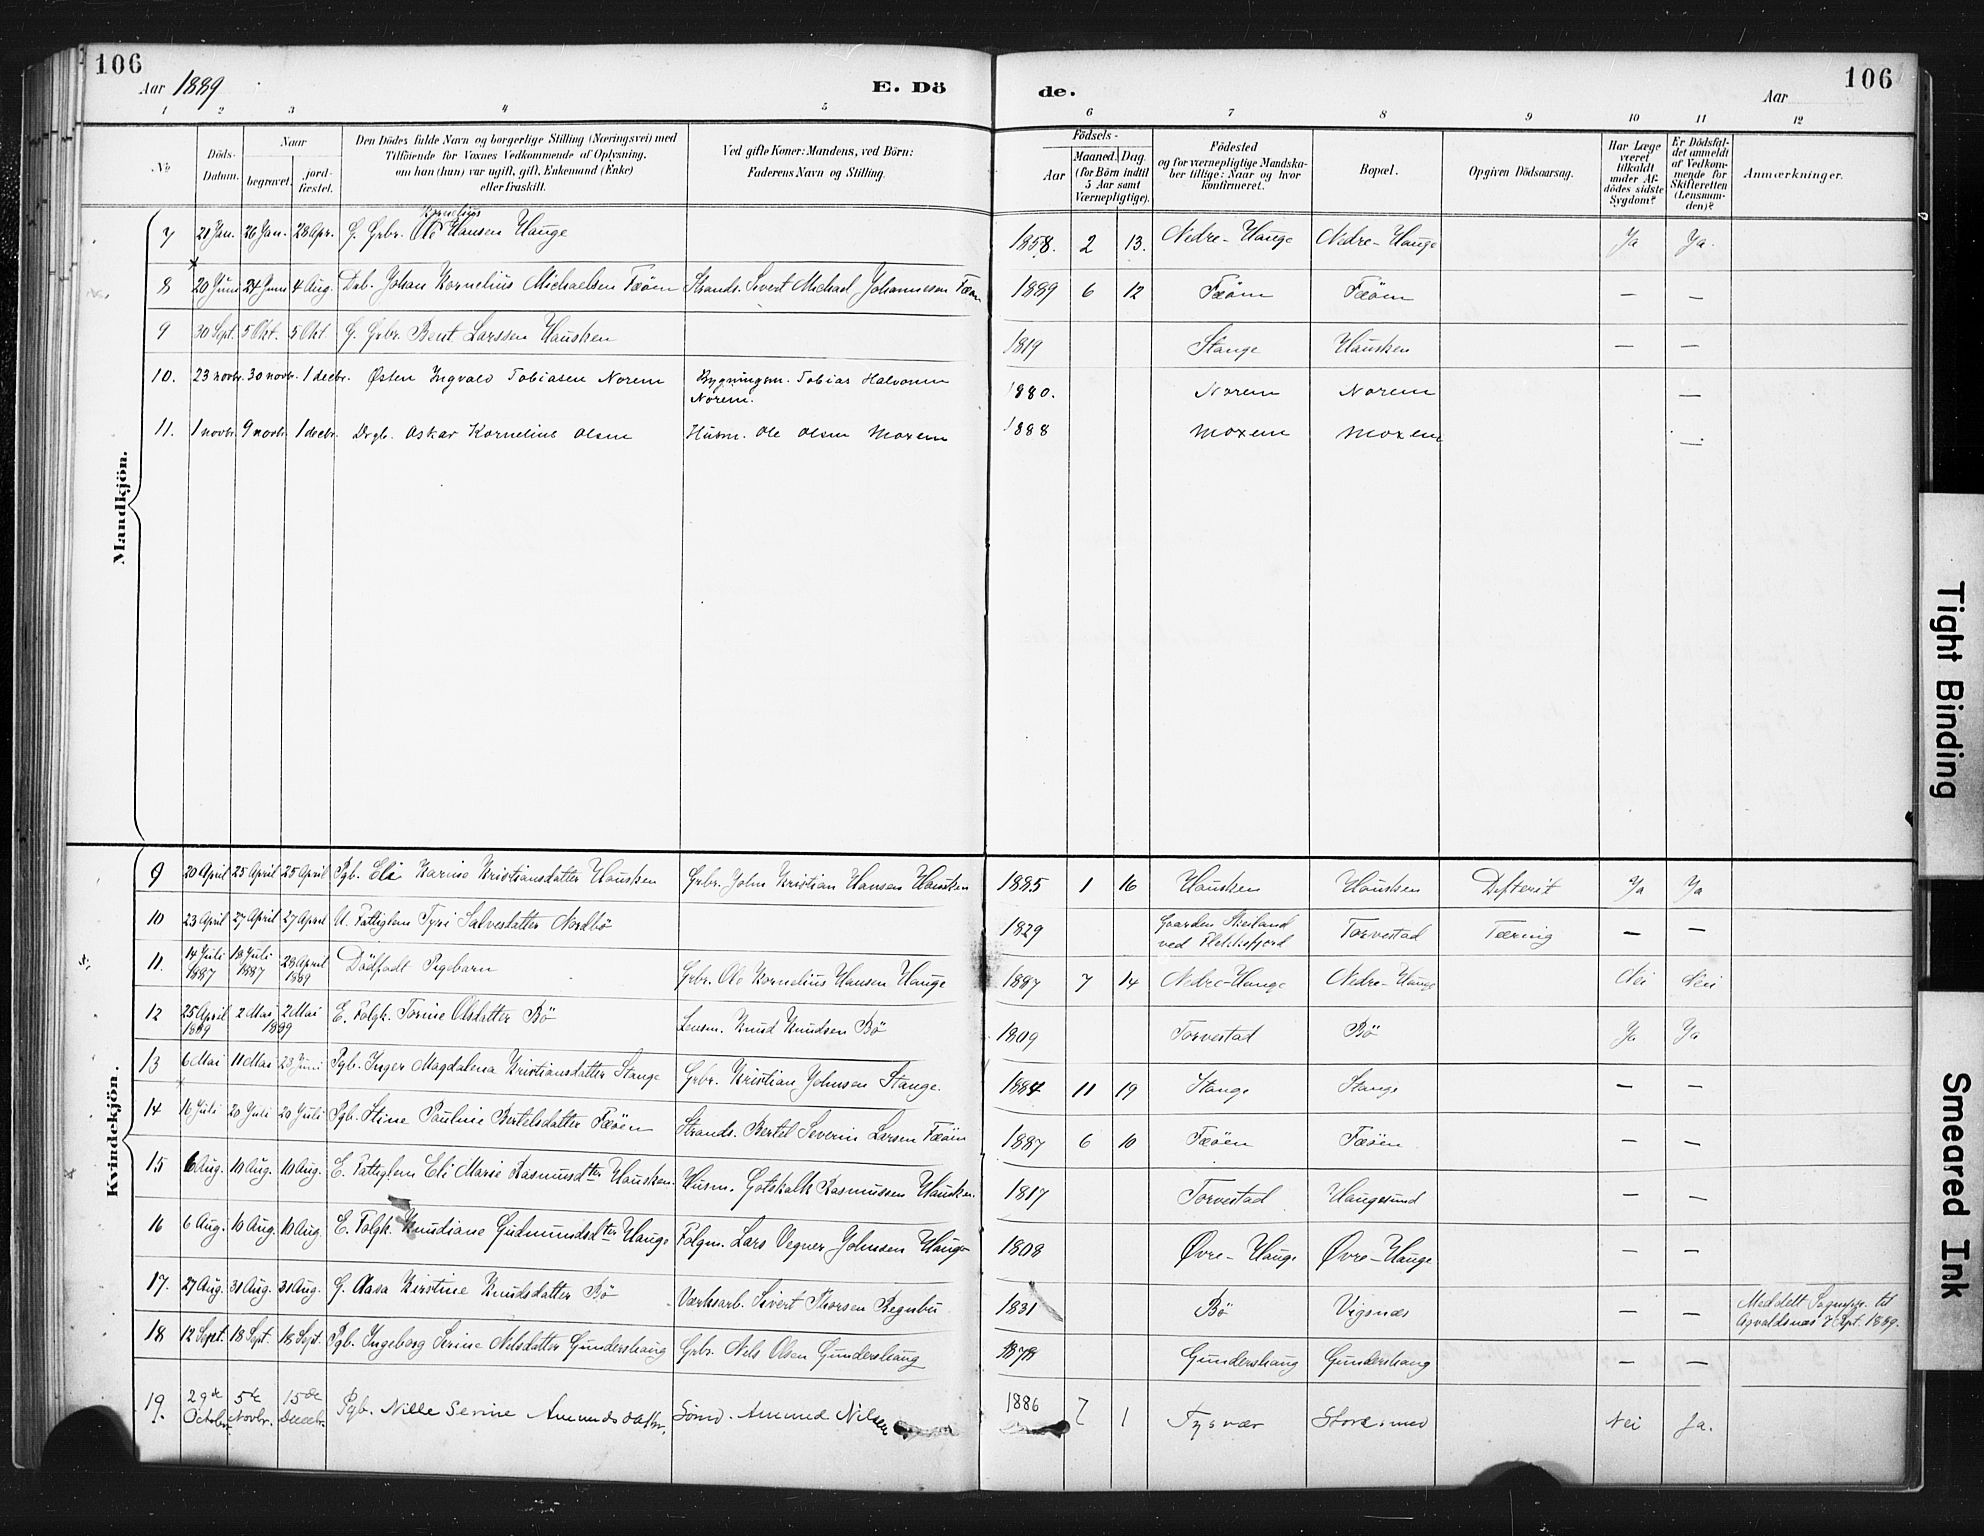 106
Aar 1889
E. Dö
de.
106
Aar
1 2 3 4 5 6 7 8 9 10 11 12
No
Döds-
Datum.
Naar
begravet.
jord-
fæstet.
Den Dödes fulde Navn og borgerlige Stilling (Næringsvei) med
Tilföiende for Voxnes Vedkommende af Oplysning,
om han (hun) var ugift, gift, Enkemand (Enke)
eller fraskilt.
Ved gifte Koner: Mandens, ved Börn:
Faderens Navn og Stilling.
Födsels-
Aar
Maaned. Dag.
(for Börn indtil
5 Aar samt
Værnepligtige).
Födested
og for værnepligtige Mandska-
ber tillige: Naar og hvor
konfirmeret.
Bopæl.
Opgiven Dödsaarsag.
Har Læge
været
tilkaldt
under Af-
dödes sidste
Sygdom?
Er Dödsfal-
det anmeldt
af Vedkom-
mende for
Skifteretten
(Lensman-
den)?
Anmærkninger.
Mandkjön.
Kornelius
7 Jan. 26 Jan. 28 Apr. G. Grbr. Ole Hansen Hauge 1858. 2 13. Nedre-Hauge Nedre-Hauge Ja Ja.
8 20 Juni 24 Juni 4 Aug. Db. Johan Kornelius Michaelsen Fæöen Strands. Sivert Michael Johannesen Fæöen 1889 6 12 Fæöen Fæöen — —
9 30 Sept. 5 Okt. 5 Okt G. Grbr. Bent Larssen Hausken 1819 Stange Hausken — —
10. 23 novbr. 30 novbr. 1 decbr. Østen Ingvald Tobiasen Norem Bygningsm. Tobias Halvorsen
Norem. 1880. Norem Norem —
11. 1 novbr. 9 novbr. 1 decbr. Drgb. Oskar Kornelius Olsen Husm. Ole Olsen Moxem 1888 Moxem Moxem —
Kvindekjön.
9 20 April 25 April 25 April Pgb. Eli Karine Kristiansdatter Hausken Grbr. John Kristian Hansen Hausken 1885 1 16 Hausken Hausken Difterit Ja Ja
10 23 April 27 April 27 April U. Fattiglem Tyri Salvesdatter Nordbö 1829 Gaarden Skeiland
ved Flekkefjord Torvestad Tæring — —
11. 14 Juli
1887 18 Juli
1887 28 April
1889 Dödfödt Pigebarn Grbr. Ole Kornelius Hansen Hauge 1887 7 14 Nedre-Hauge Nedre-Hauge Nei Nei
12 25 April
1889 2 Mai 2 Mai
1889 E. Folgk. Torine Olsdatter Bö Lensm. Knud Knudsen Bö 1809 Torvestad Bö Ja Ja
13 6 Mai 11 Mai 23 Juni Pgb. Inger Magdalena Kristiansdatter Stange Grbr. Kristian Johnsen Stange. 1884 11 19 Stange Stange — —
14 16 Juli 20 Juli 20 Juli Pgb. Stine Pauline Bertelsdatter Fæöen Strands. Bertel Severin Larsen Fæöen 1887 6 10 Fæöen Fæöen — —
15 6 Aug. 10 Aug. 10 Aug. E. Fattiglem Eli Marie Rasmusdter Hausken. Husm. Gotskalk Rasmussen Hausken. 1817 Torvestad Haugesund — —
16 6 Aug. 10 Aug. 10 Aug. E. Folgk. Knudiane Gudmundsdter Hauge Folgm. Lars Vegner Johnsen Hauge 1808 Øvre-Hauge Øvre-Hauge — —
17. 27 Aug. 31 Aug. 31 Aug. G. Aasa Kirstine Knudsdatter Bö Værksarb. Sivert Thorsen Regnbu 1831 Bö Vigsnæs — — Meddelt Sognepr. til
Agvaldsnæs 7 Sept. 1889.
18 12 Sept. 18 Sept. 18 Sept. Pgb. Ingeborg Serine Nilsdatter Gundershaug Grbr. Nels Olsen Gundershaug 1878 Gundershaug Gundershaug — —
19. 29de
Octobr. 5te
Novbr. 15de
Decebr. Pgb. Nille Serine Amundsdatter. Sömd. Amund Nilsen 1886 7 1 Tysvær Store Nei Ja.
Tight Binding
Smeared Ink